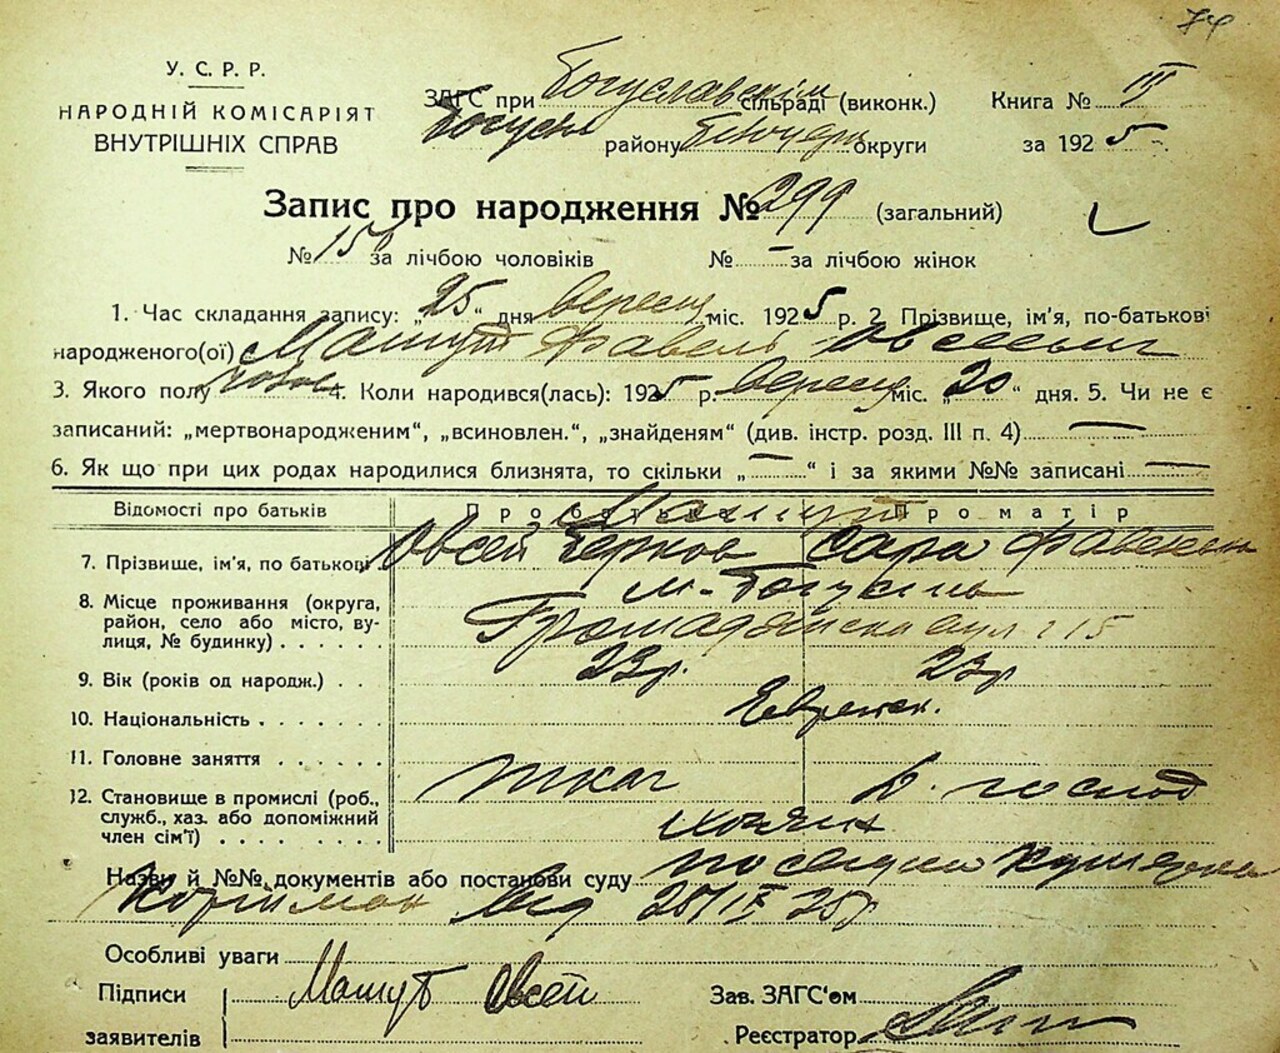 74
У. С. Р. Р.
НАРОДНІЙ КОМІСАРІЯТ
ВНУТРІШНІХ СПРАВ
ЗАГС при Богуславскім сільраді (виконк.) Книга № III
району округи за 1925
Запис про народження № 299 (загальний)
№ 150 за лічбою чоловіків № – за лічбою жінок
1. Час складання запису: „25“ дня вересня міс. 1925 р. 2. Прізвище, ім'я, по-батькові
народженого(ої) Машут Фавель Овсеевич
3. Якого полу 4. Коли народився(лась): 1925 р. вересня міс. „20“ дня. 5. Чи не є
записаний: „мертвонародженим“, „всиновлен.“, „знайденям“ (див. інстр. розд. III п. 4) —
6. Як що при цих родах народилися близнята, то скільки „—“ і за якими №№ записані —
Відомості про батьків Про батька Про матір
Машут
7. Прізвище, ім'я, по батькові Овсей Берков Сара Фавелевна
8. Місце проживання (округа, м. Богуслав
район, село або місто, ву-
лиця, № будинку) Громадянска вул 15
9. Вік (років од народж.) 23р. 23р
10. Національність Еврейск.
11. Головне заняття ткач д. господ
12. Становище в промислі (роб.,
служб., хаз. або допоміжний хозяин
член сім'ї)
Назви й №№ документів або постанови суду
від 25/IX 25р
Особливі уваги
Підписи Машут Овсей Зав. ЗАГС'ом
заявителів Реєстратор